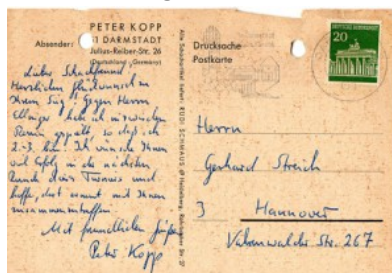 PETER KOPP
61 DARMSTADT
Absender: Julius-Reiber-Str. 26
(Deutschland, Germany)
Lieber Schachfreund
Herzlichen Glückwunsch zu
Ihrem Sieg! Gegen Herrn
habe ich inzwischen
Remis gespielt, so daß ich
2.-3. bin. Ich wünsche Ihnen
viel Erfolg in der nächsten
Runde des Turniers und
hoffe, dort erneut mit Ihnen
zusammenzutreffen.
Mit freundlichen Grüßen
Peter Kopp
Alle Schachartikel liefert: RUDI SCHMAUS Heidelberg
Drucksache
Postkarte
DEUTSCHE BUNDESPOST
20
Herrn
Gerhard Streich
3 Hannover
Vahrenwalder Str. 267